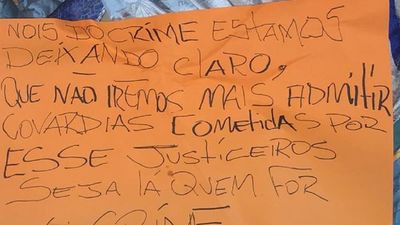 NOIS DO CRIME ESTAMOS
DEIXANDO CLARO,
QUE NÃO IREMOS MAIS ADMITIR
COVARDIAS COMETIDAS POR
ESSE JUSTICEIROS
SEJA LÁ QUEM FOR
CRIME